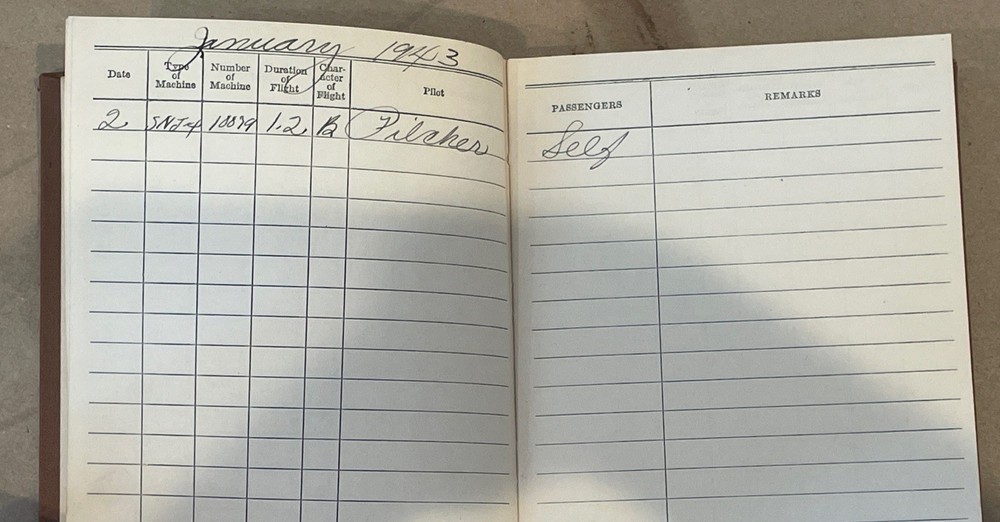 January 1943
Date Type of Machine Number of Machine Duration of Flight Char-acter of Flight Pilot PASSENGERS REMARKS
2 SNJ-4 10079 1.2 B Pilcher Self